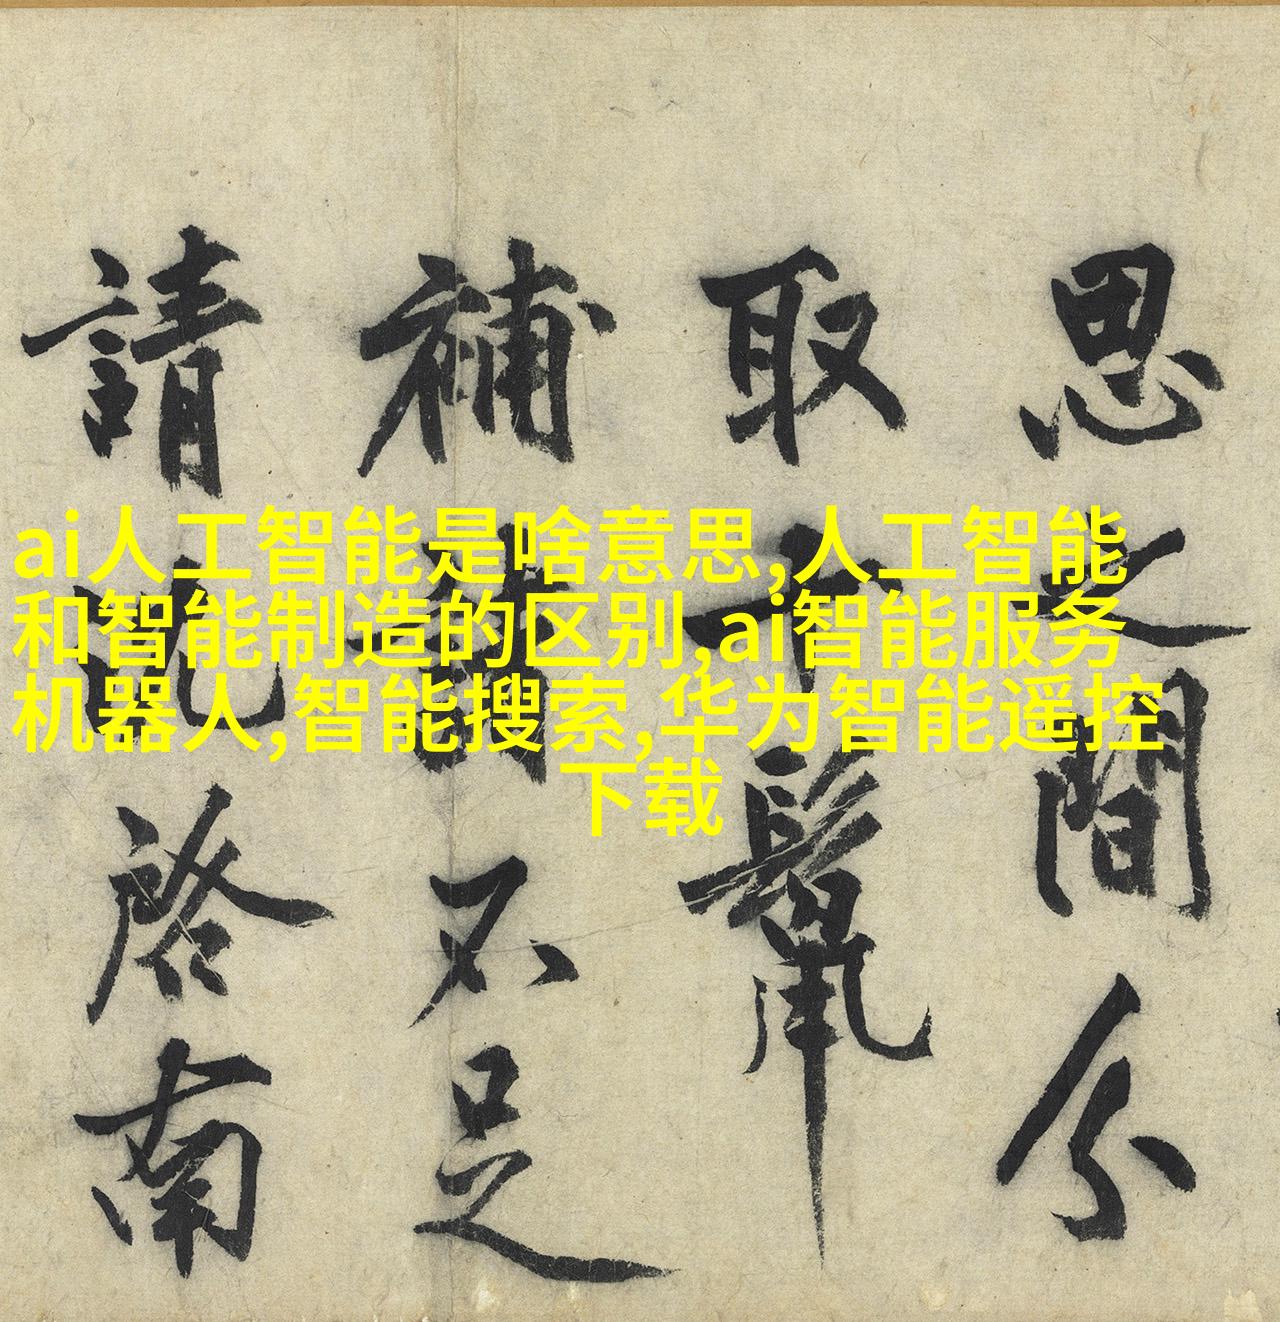 ai人工智能是啥意思,人工智能
和智能制造的区别,ai智能服务
机器人,智能搜索,华为智能遥控
下载
思之間分
取十鬣
補諸不足
請沈啓南